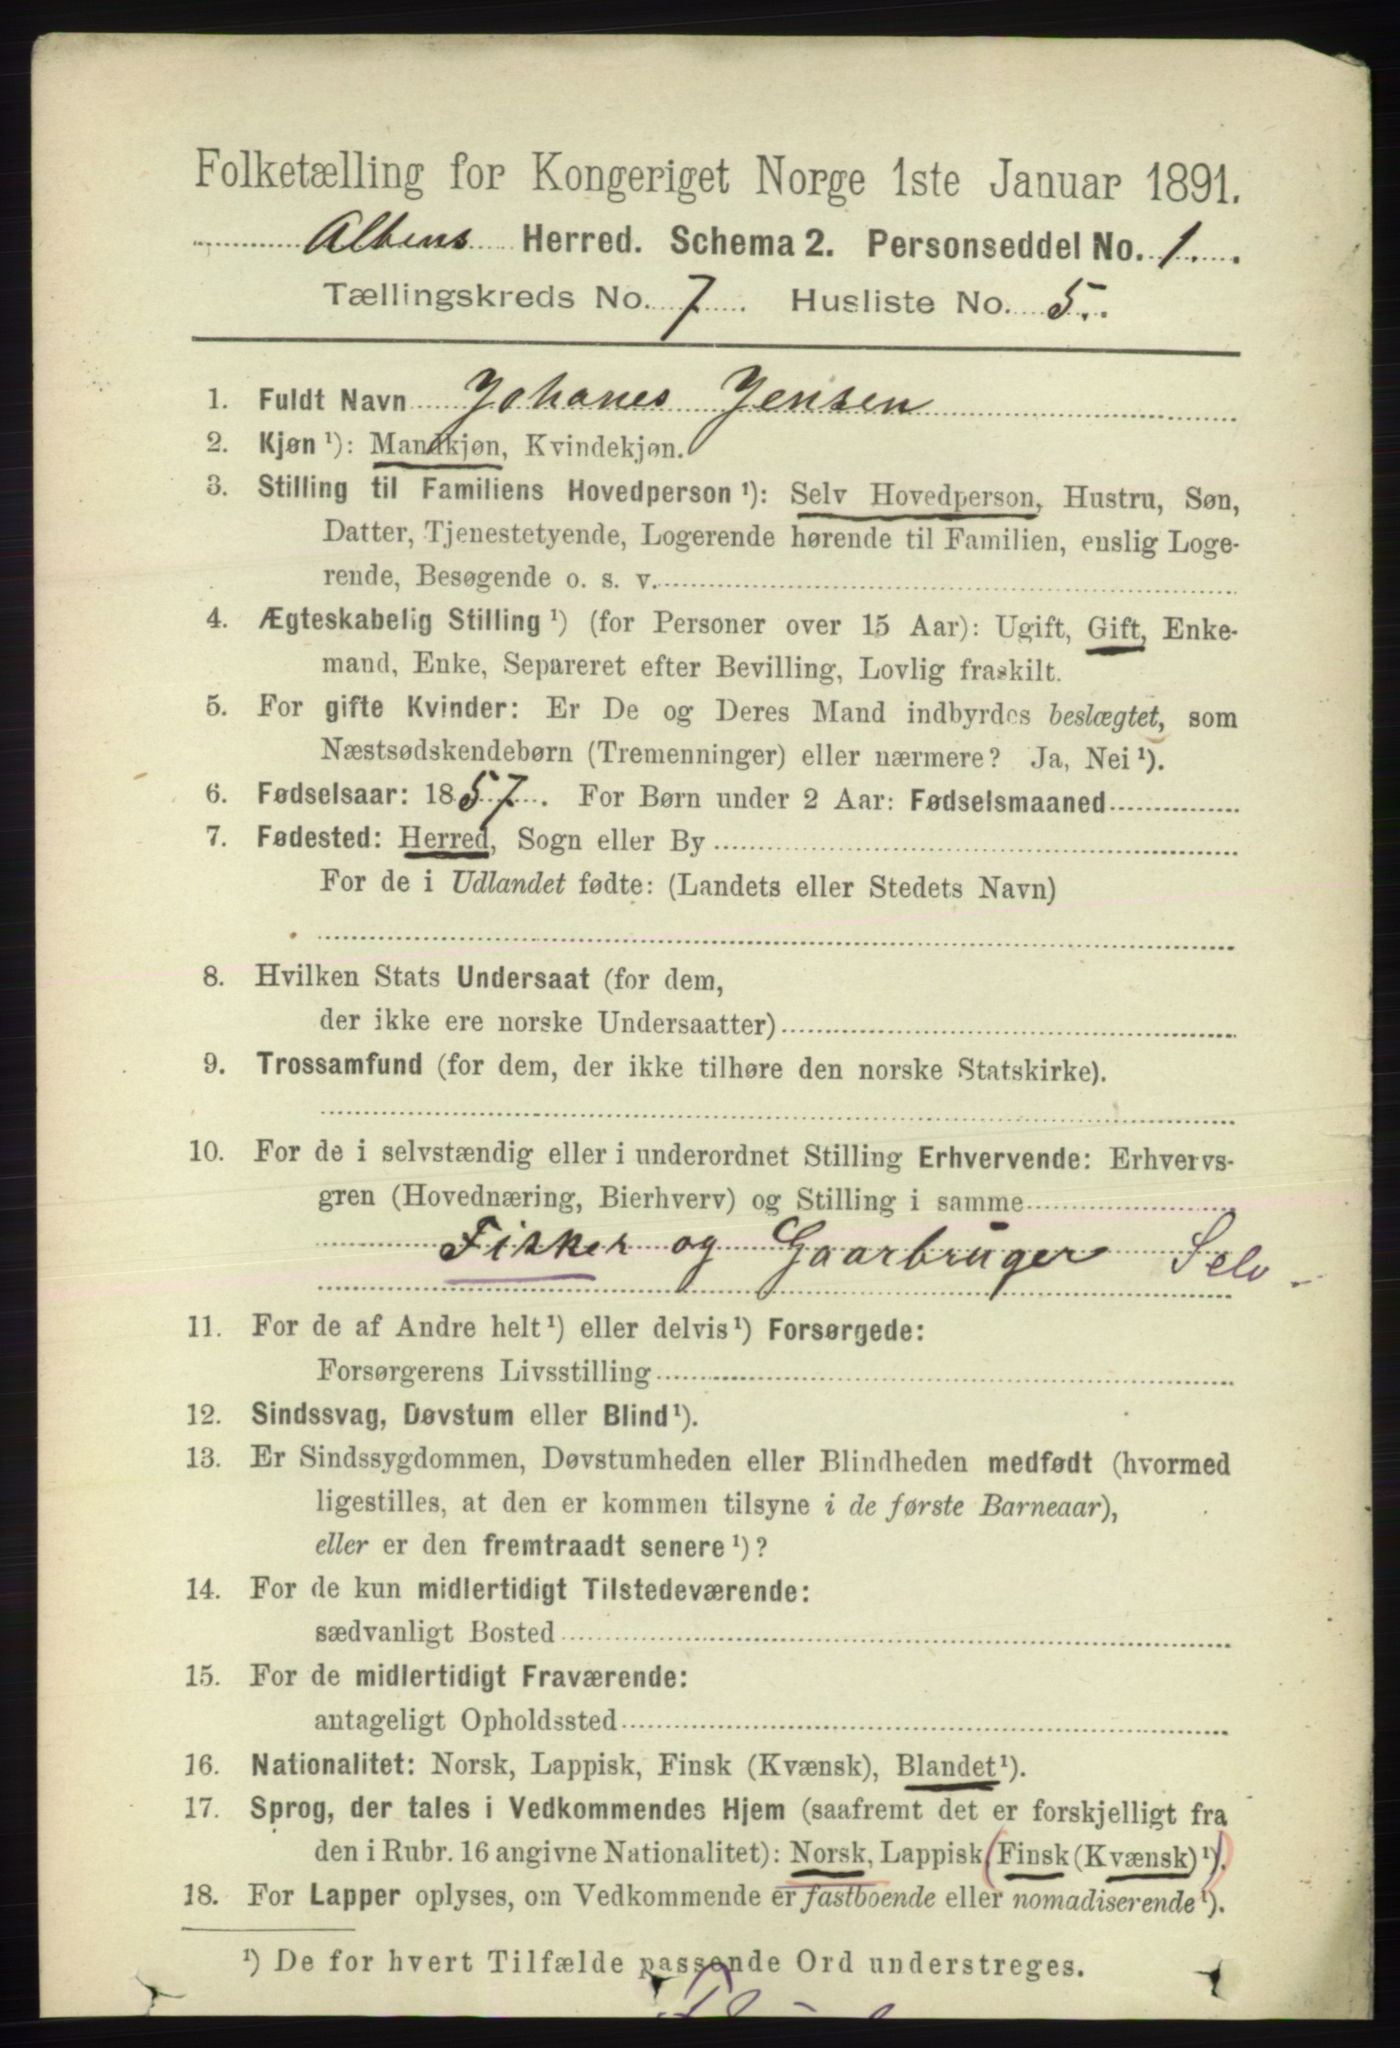 Folketælling for Kongeriget Norge 1ste Januar 1891.
Altens Herred. Schema 2. Personseddel No. 1.
Tællingskreds No. 7 Husliste No. 5.
1. Fuldt Navn Johanes Jensen
2. Kjøn ¹): Mandkjøn, Kvindekjøn.
3. Stilling til Familiens Hovedperson ¹): Selv Hovedperson, Hustru, Søn,
Datter, Tjenestetyende, Logerende hørende til Familien, enslig Loge-
rende, Besøgende o. s. v.
4. Ægteskabelig Stilling ¹) (for Personer over 15 Aar): Ugift, Gift, Enke-
mand, Enke, Separeret efter Bevilling, Lovlig fraskilt.
5. For gifte Kvinder: Er De og Deres Mand indbyrdes beslægtet, som
Næstsødskendebørn (Tremenninger) eller nærmere? Ja, Nei ¹).
6. Fødselsaar: 1857. For Børn under 2 Aar: Fødselsmaaned
7. Fødested: Herred, Sogn eller By
For de i Udlandet fødte: (Landets eller Stedets Navn)
8. Hvilken Stats Undersaat (for dem,
der ikke ere norske Undersaatter)
9. Trossamfund (for dem, der ikke tilhøre den norske Statskirke).
10. For de i selvstændig eller i underordnet Stilling Erhvervende: Erhvervs-
gren (Hovednæring, Bierhverv) og Stilling i samme
Fisker og Gaarbruger Selv
11. For de af Andre helt ¹) eller delvis ¹) Forsørgede:
Forsørgerens Livsstilling
12. Sindssvag, Døvstum eller Blind ¹).
13. Er Sindssygdommen, Døvstumheden eller Blindheden medfødt (hvormed
ligestilles, at den er kommen tilsyne i de første Barneaar),
eller er den fremtraadt senere ¹)?
14. For de kun midlertidigt Tilstedeværende:
sædvanligt Bosted
15. For de midlertidigt Fraværende:
antageligt Opholdssted
16. Nationalitet: Norsk, Lappisk, Finsk (Kvænsk), Blandet ¹).
17. Sprog, der tales i Vedkommendes Hjem (saafremt det er forskjelligt fra
den i Rubr. 16 angivne Nationalitet): Norsk, Lappisk (Finsk (Kvænsk) ¹).
18. For Lapper oplyses, om Vedkommende er fastboende eller nomadiserende ¹).
¹) De for hvert Tilfælde passende Ord understreges.